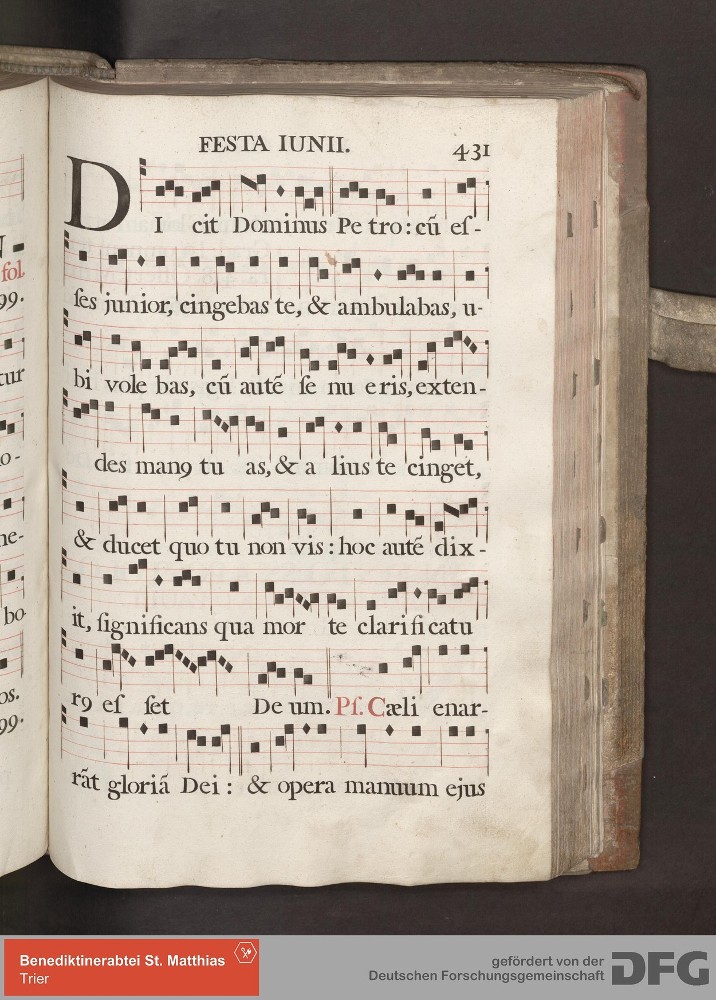 FESTA IUNII.
431
DI cit Dominus Pe tro: cũ eſ-
ſes junior, cingebas te, & ambulabas, u-
bi vole bas, cũ autẽ ſe nu eris, exten-
des manꝰ tu as, & a lius te cinget,
& ducet quo tu non vis: hoc autẽ dix-
it, ſignificans qua mor te clarificatu
rꝰ eſ ſet De um. Pſ. Cæli enar-
rãt gloriã Dei: & opera manuum ejus
fol.
99.
tur
o-
ne-
bo
os.
99.
Benediktinerabtei St. Matthias
Trier
gefördert von der
Deutschen Forschungsgemeinschaft
DFG